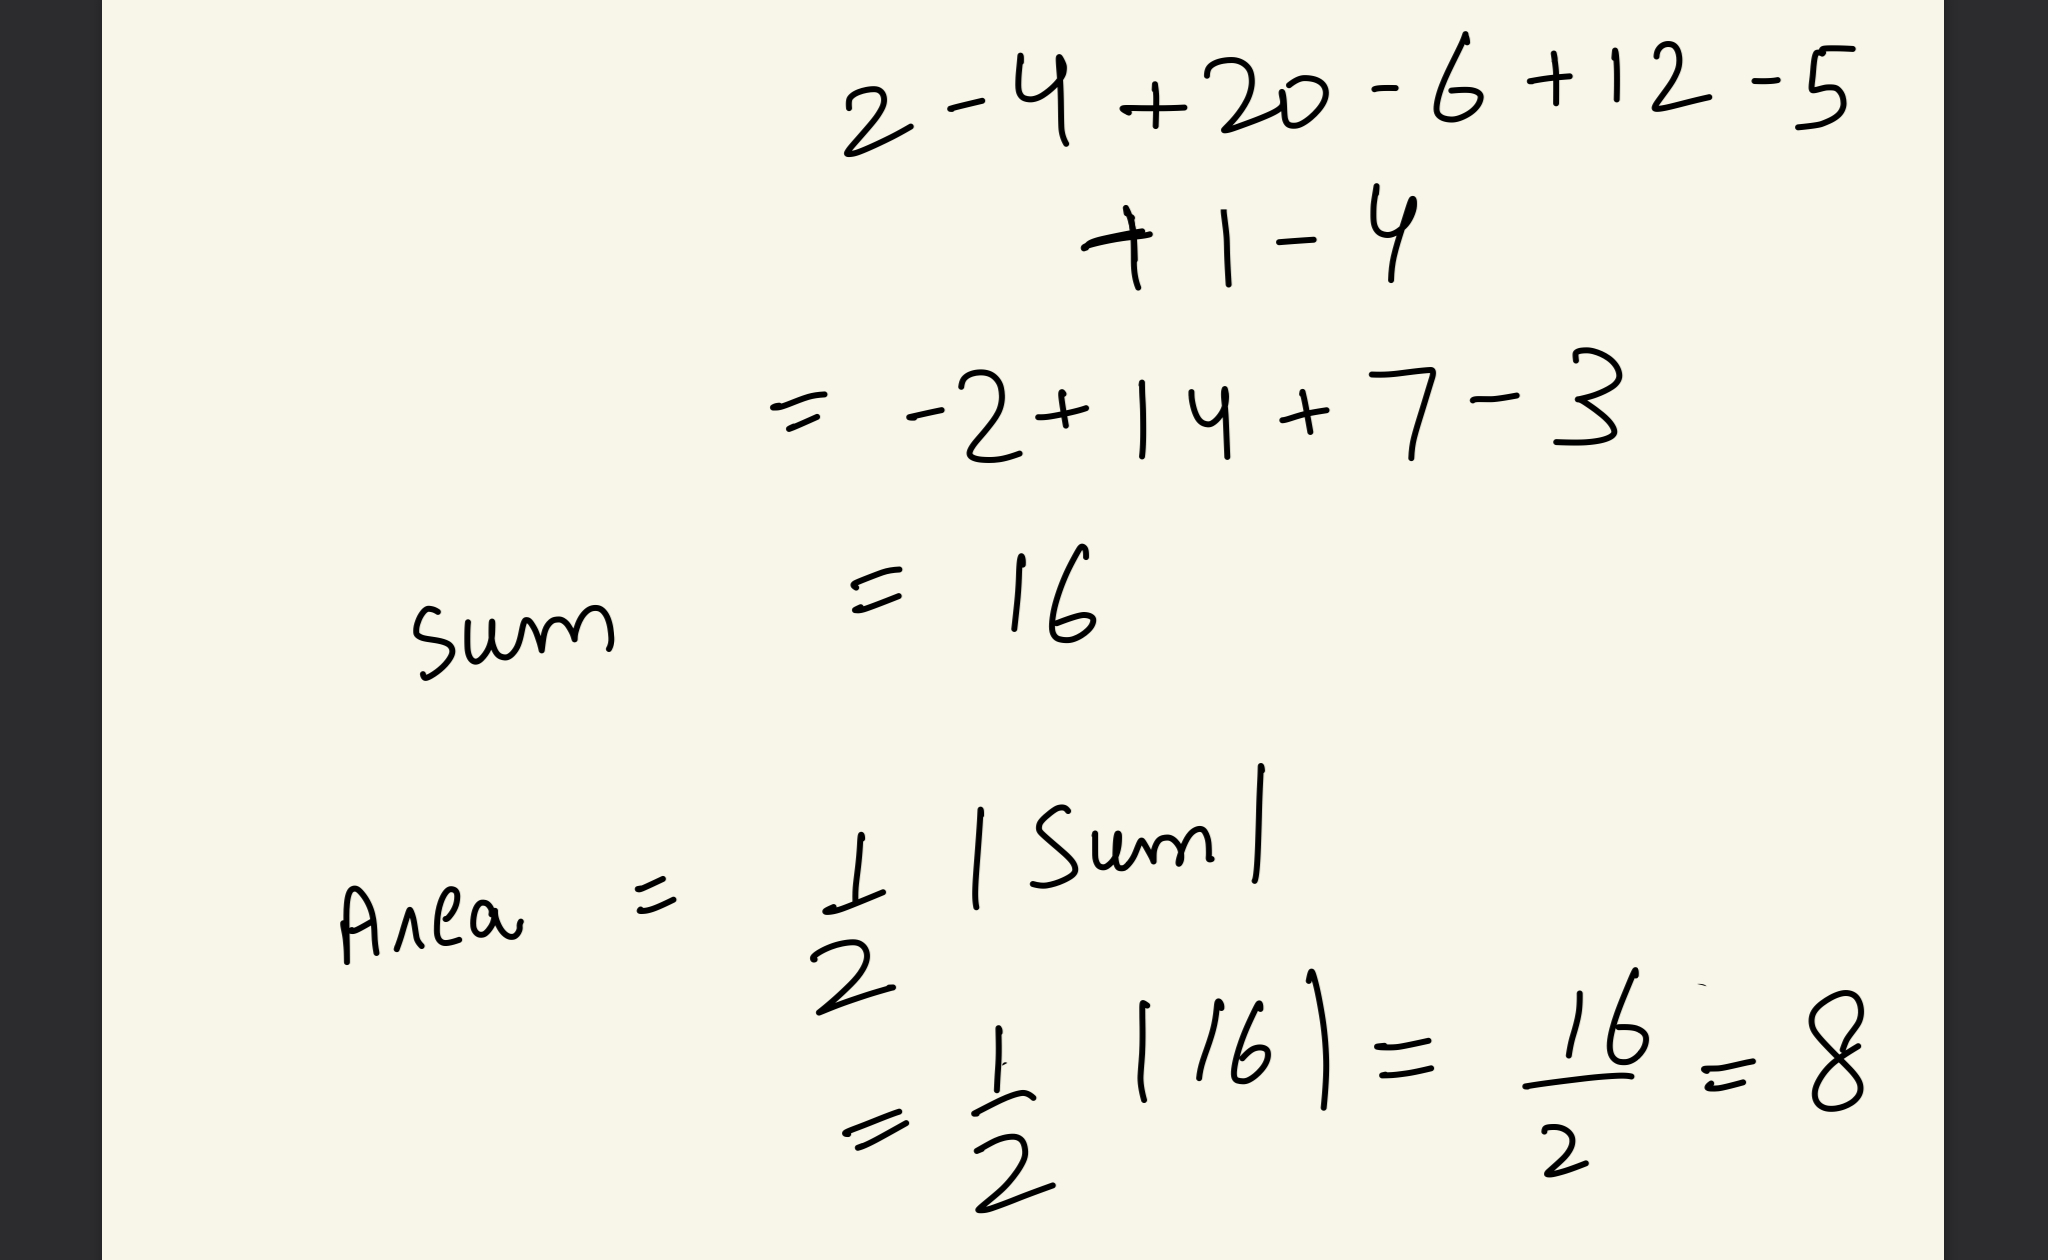 2 - 4 + 20 - 6 + 12 - 5
+ 1 - 4
= -2 + 14 + 7 - 3
Sum = 16
Area = 1/2 |Sum|
= 1/2 |16| = 16/2 = 8